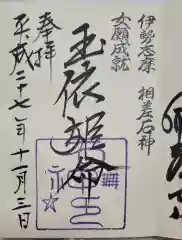 伊勢志摩 相差石神
女願成就
玉依姫命
奉拝
平成二十七年十一月三日